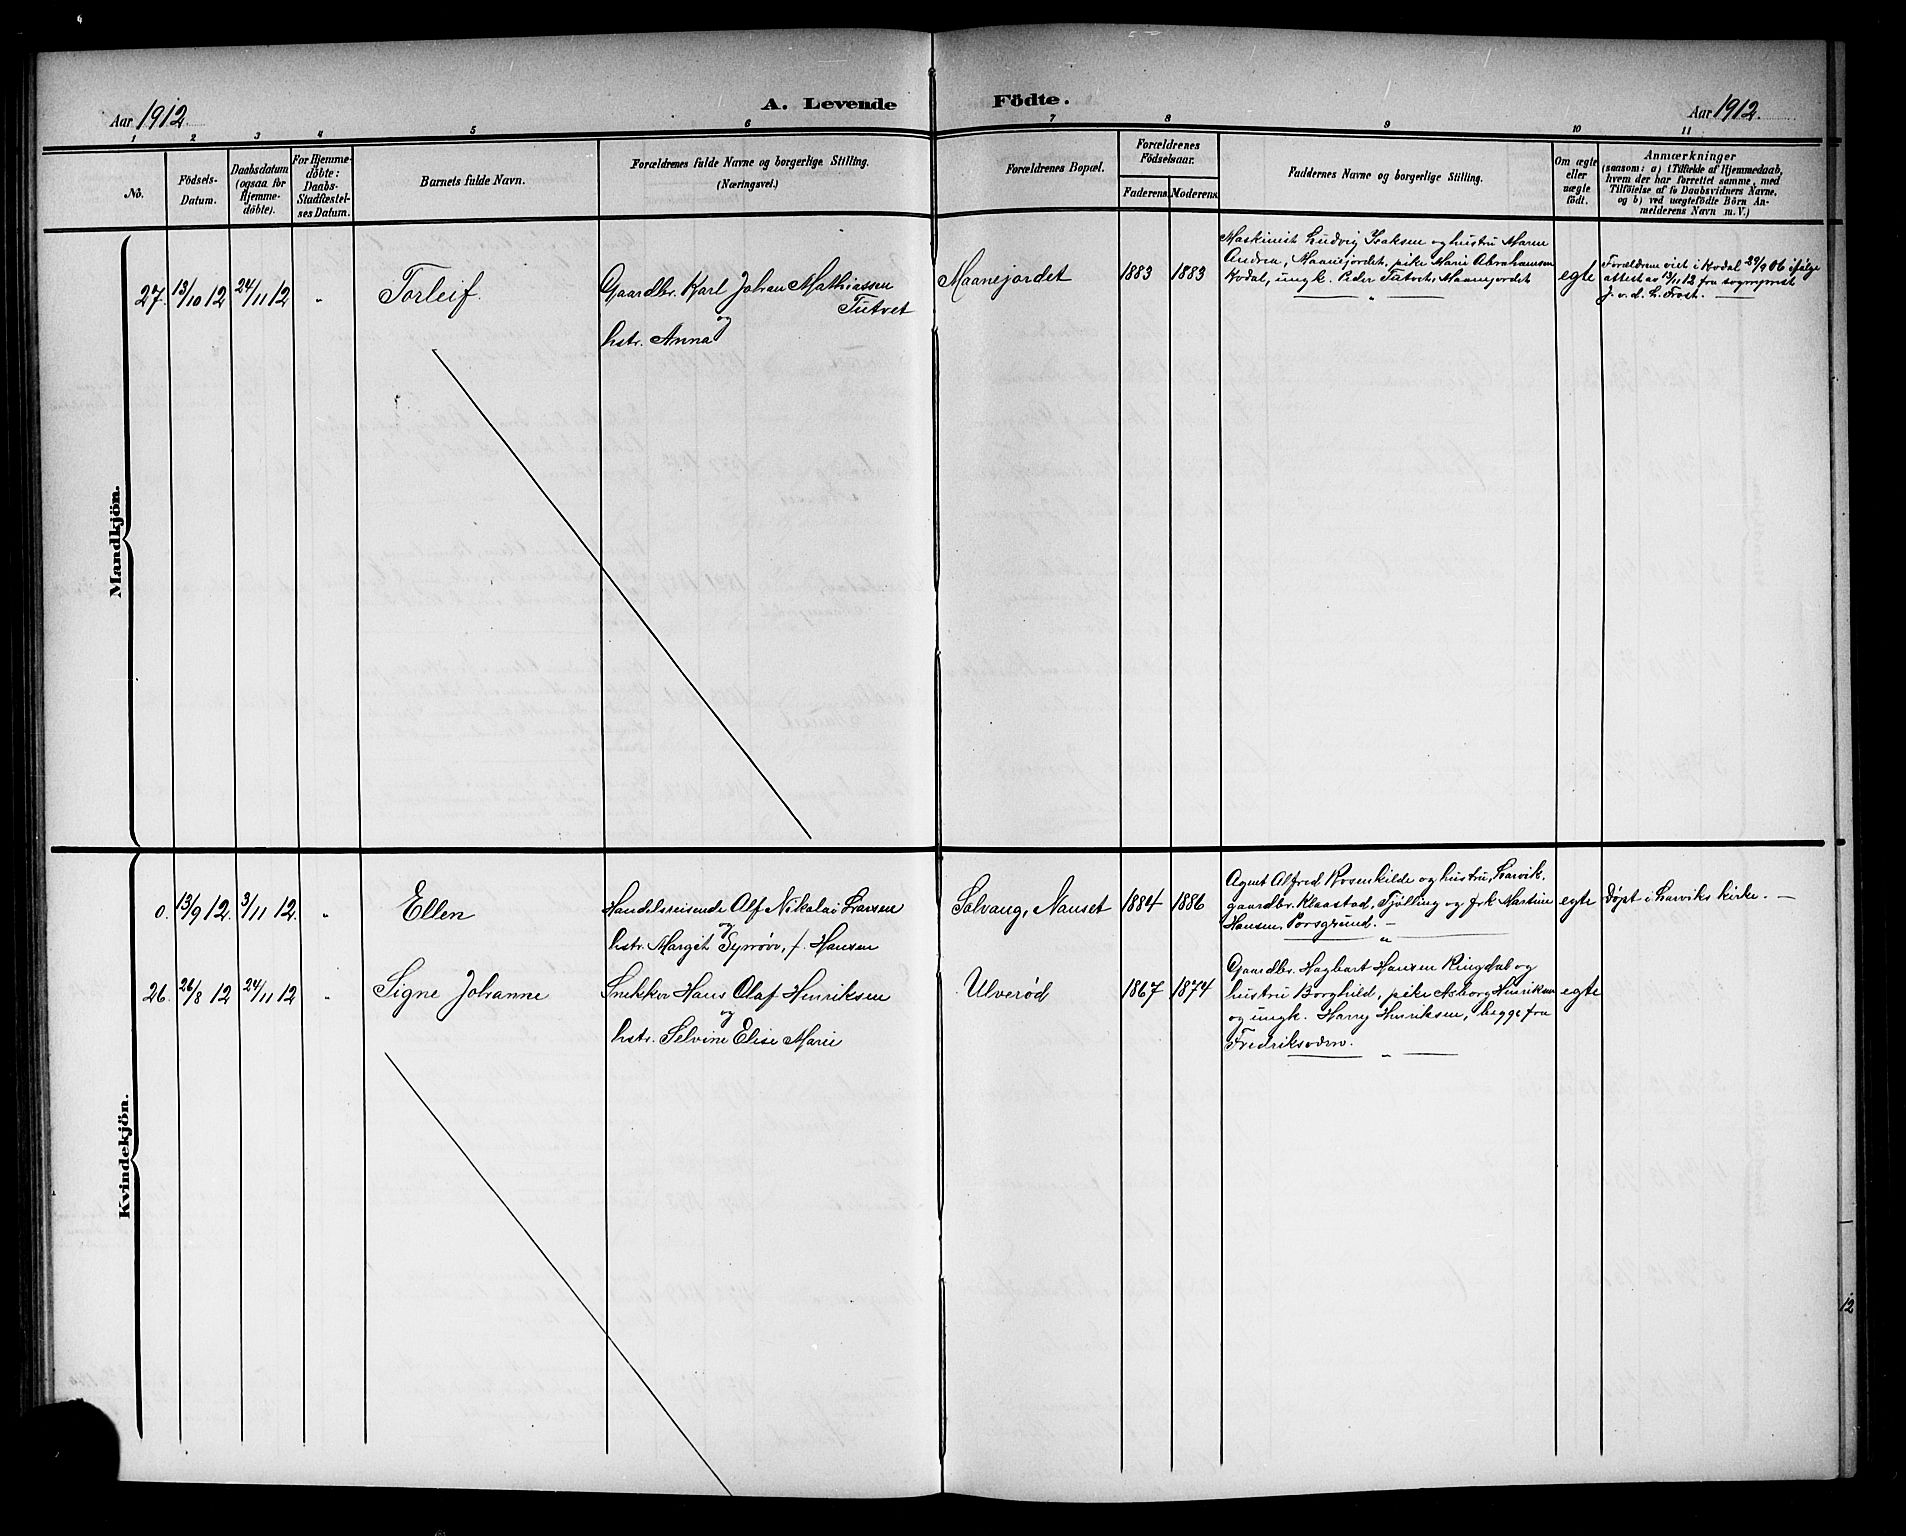 A. Levende Födte.
Aar 1912.
Aar 1912.
1 2 3 4 5 6 7 8 9 10 11
No.
Födsels-
Datum.
Daabsdatum
(ogsaa for
Hjemme-
döbte).
For Hjemme-
döbte:
Daabs-
Stadfæstel-
ses Datum.
Barnets fulde Navn.
Forældrenes fulde Navne og borgerlige Stilling.
(Næringsvei.)
Forældrenes Bopæl.
Forældrenes
Födselsaar.
Faderens Moderens
Faddernes Navne og borgerlige Stilling.
Om ægte
eller
uægte
födt.
Anmærkninger
(saasom: a) i Tilfælde af Hjemmedaab,
hvem der har forrettet samme, med
Tilföielse af to Daabsvidners Navne,
og b) ved uægtefödte Börn An-
melderens Navn m. V.)
Mandkjön.
27. 13/10 12 24/11 12 " Torleif.
Gaardbr. Karl Johan Mathiassen
Tutvet
og
hstr. Anna
Maanejordet 1883 1883
Maskinist Ludvig Isaksen og hustru Maren
Andrea, Maanejordet, pike Marie Abrahamsen
Kodal, ungk. Peder Tutvet, Maanejordet
"
egte
Forældrene viet i Kodal 29/9 06 ifølge
attest av 13/11 12 fra sogneprest
J. v. d. L. Frost.
Kvindekjön.
0. 13/9 12. 3/11 12. " Ellen
Handelsreisende Alf Nikolai Larsen
og
hstr. Margit Synnøve, f. Hansen
Solvang, Nanset 1884 1886
Agent Alfred Rosenkilde og hustru, Larvik.
gaardbr. Klaastad, Tjølling og frk Martine
Hansen, Porsgrund. —
"
egte Døpt i Larviks kirke. —
26. 26/8 12 24/11 12 " Signe Johanne
Snekker Hans Olaf Henriksen
og
hstr. Selvine Elise Marie
Ulverød 1867 1874
Gaardbr. Hagbart Hansen Ringdal og
hustru Borghild, pike Asborg Henriksen
og ungk. Harry Henriksen, begge fra
Fredriksværn.
"
egte
12